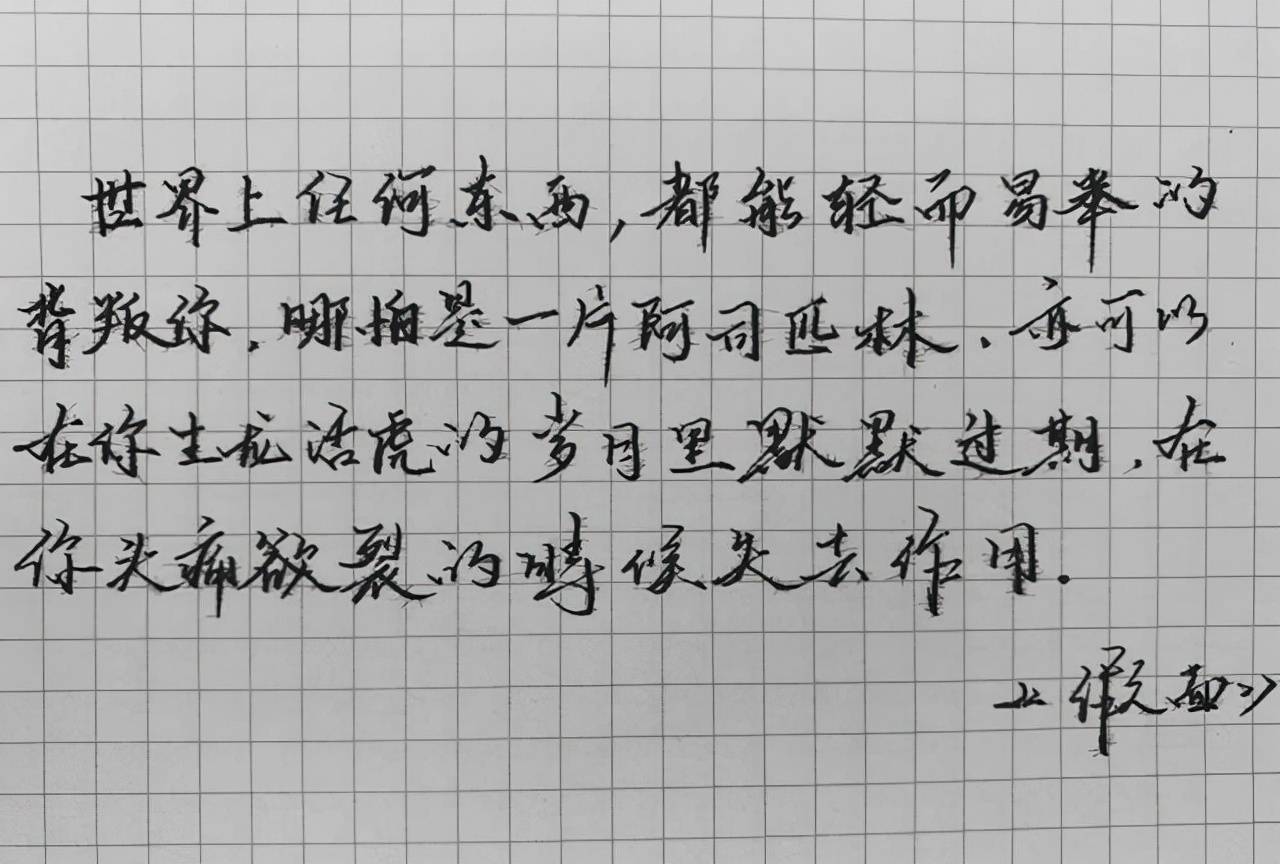 世界上任何东西,都能轻而易举的
背叛你.哪怕是一片阿司匹林.亦可以
在你生龙活虎的岁月里默默过期,在
你头痛欲裂的時候失去作用.
《假面》